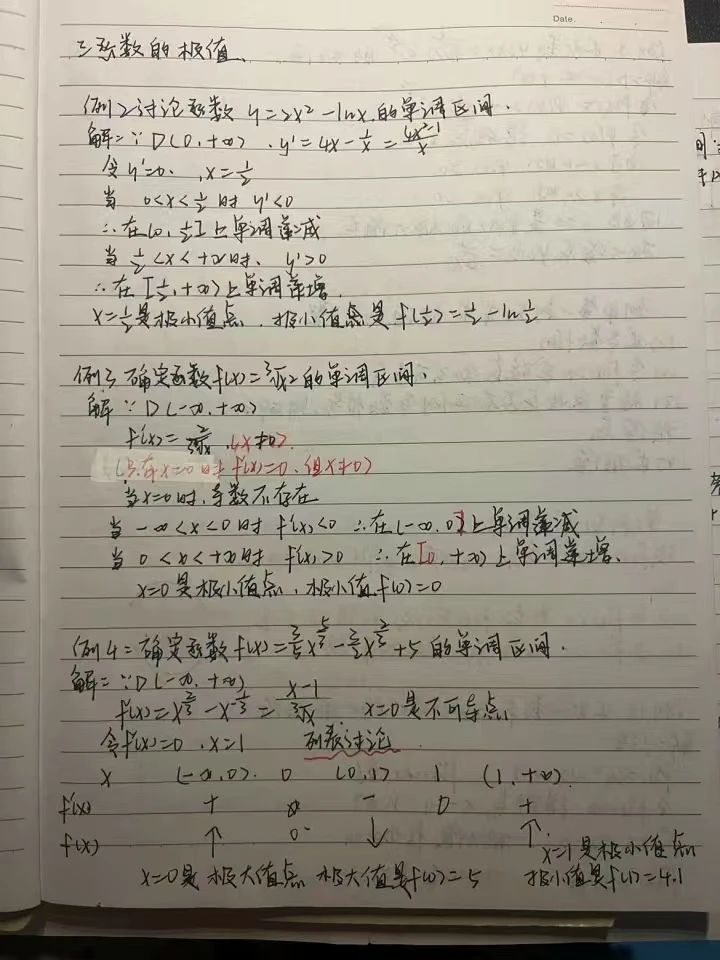 Date.
三函数的极值、
例2讨论函数 y=2x²-lnx 的单调区间.
解=∵D(0,+∞) . y'=4x-1/x=(4x²-1)/x
令y'=0. ,x=1/2
当 0<x<1/2时 y'<0
∴在(0,1/2]上单调递减
当 1/2<x<+∞时、 y'>0
∴在[1/2,+∞)上单调递增.
x=1/2是极小值点,极小值是f(1/2)=1/2-ln1/2
例3 确定函数f(x)=³√x²的单调区间、
解∵D(-∞,+∞)
f'(x)=2/(3³√x) .(x≠0).
(只有x=0时f'(x)=0、但x≠0)
当x=0时、导数不存在
当 -∞<x<0时 f'(x)<0 ∴在(-∞,0]上单调递减
当 0<x<+∞时 f'(x)>0 ∴在[0,+∞)上单调递增、
x=0是极小值点,极小值f(0)=0
例4=确定函数f(x)=3/5x^(5/3)-3/2x^(2/3)+5的单调区间.
解=∵D(-∞,+∞)
f'(x)=x^(2/3)-x^(-1/3)=(x-1)/³√x x=0是不可导点
令f'(x)=0 ,x=1 列表讨论
x (-∞,0). 0 (0,1) 1 (1,+∞)
f'(x) + - 0 +
f(x) ↑ ↓ ↑
x=1是极小值点
x=0是极大值点 极大值是f(0)=5 极小值是f(1)=4.1